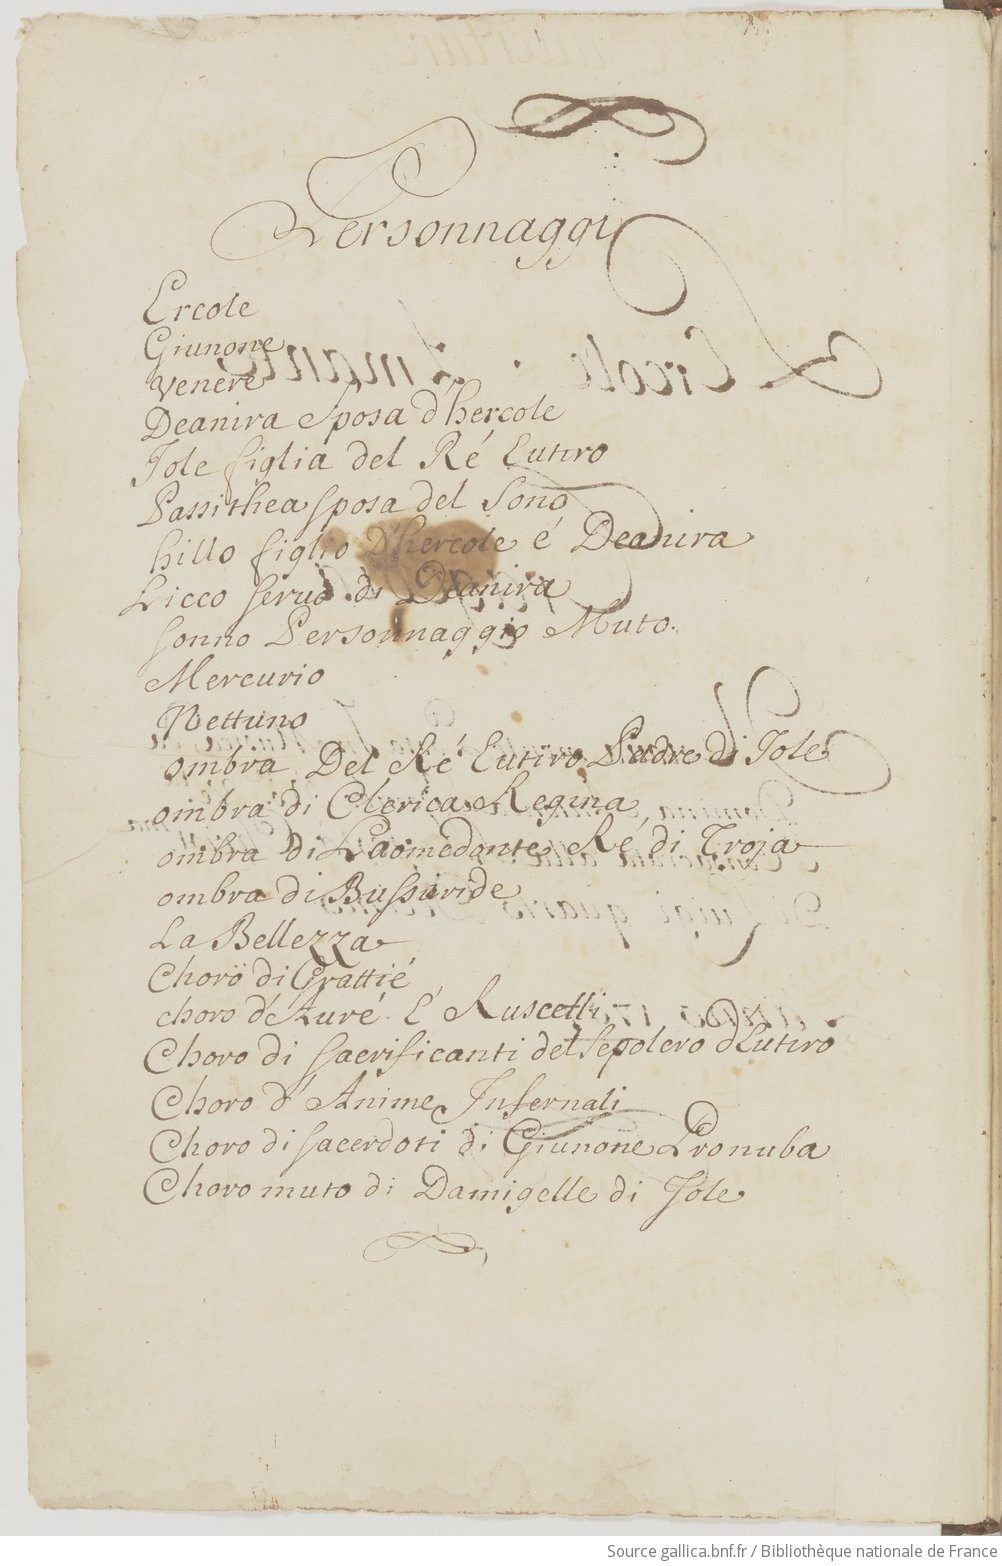 Personnaggi
Ercole
Giunone
Venere
Deanira Sposa d'hercole
Jole figlia del Ré Eutiro
Passithea sposa del Sono
hillo figlio D'hercole é Deanira
Licco servo di Deanira
sonno Personnaggio Muto.
Mercurio
Nettuno
ombra Del Ré Eutiro Padre di Jole
ombra di Clerica Regina
ombra di Laomedonte Ré di Troja
ombra di Bussiride
La Bellezza
Choro di Grattié
choro d'Auré E Ruscelli
Choro di sacrificanti del sepolcro d'Eutiro
Choro d'Anime Infernali
Choro di sacerdoti di Giunone Pronuba
Choro muto di Damigelle di Jole
Source gallica.bnf.fr / Bibliothèque nationale de France